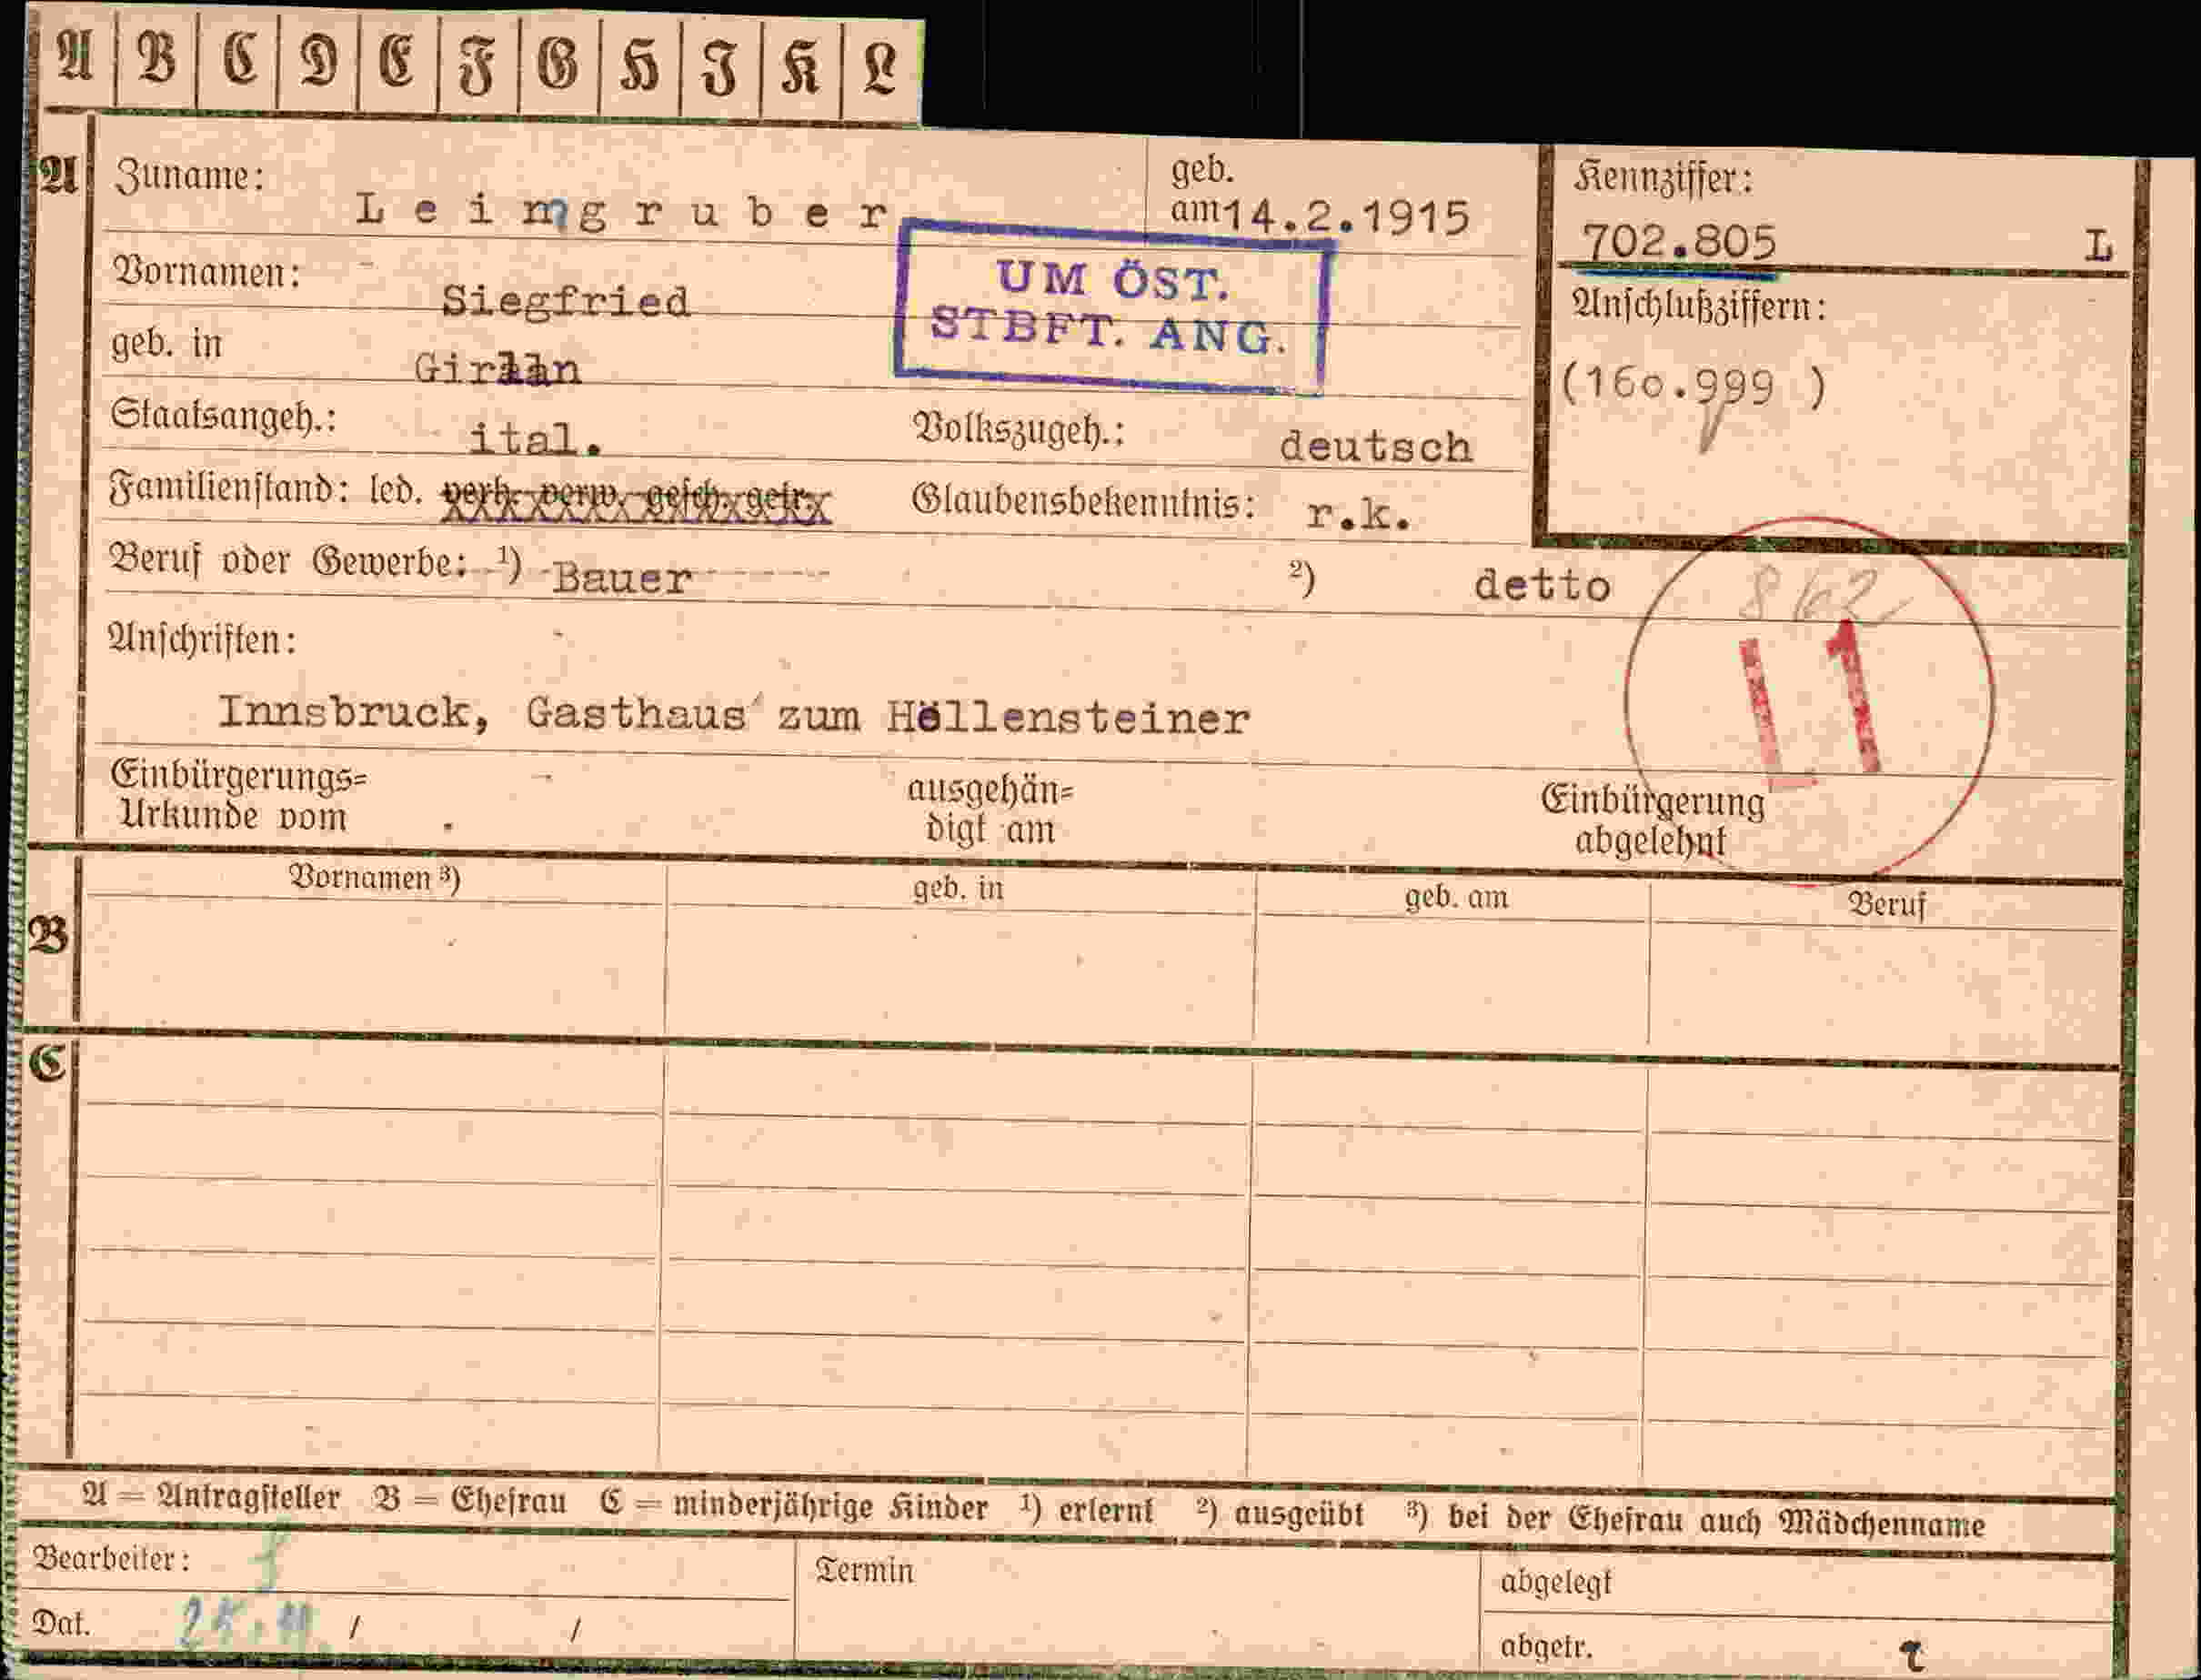 A B C D E F G H I K L
A Zuname: Leimgruber geb. am 14.2.1915 Kennziffer: 702.805 L
UM ÖST.
STBFT. ANG.
Vornamen: Siegfried Anschlußziffern:
geb. in Girlan (160.999 )
Staatsangeh.: ital. Volkszugeh.: deutsch
Familienstand: led. verh. verw. gesch. getr. Glaubensbekenntnis: r.k.
Beruf oder Gewerbe: 1) Bauer 2) detto
862
L1
Anschriften:
Innsbruck, Gasthaus zum Höllensteiner
Einbürgerungs=
Urkunde vom
ausgehän=
digt am
Einbürgerung
abgelehnt
B Vornamen 3) geb. in geb. am Beruf
C
A = Antragsteller B = Ehefrau C = minderjährige Kinder 1) erlernt 2) ausgeübt 3) bei der Ehefrau auch Mädchenname
Bearbeiter: Termin abgelegt
Dat. / / abgetr.